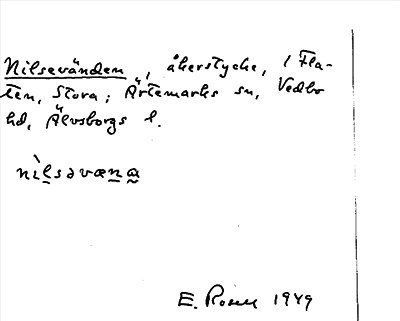 Nilsevänden, åkerstycke, i Fla-
ten, Stora; Ärtemarks sn, Vedbo
hd, Älvsborgs l.
nìlsəvæna
E. Rosell 1949